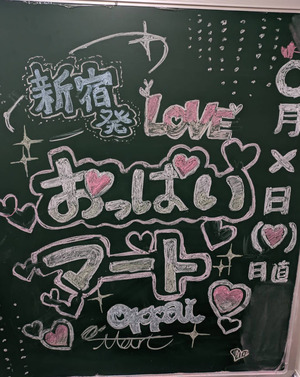 新宿発
LOVE
おっぱい
マート
oppai
mart
〇月×日(♥)
日直